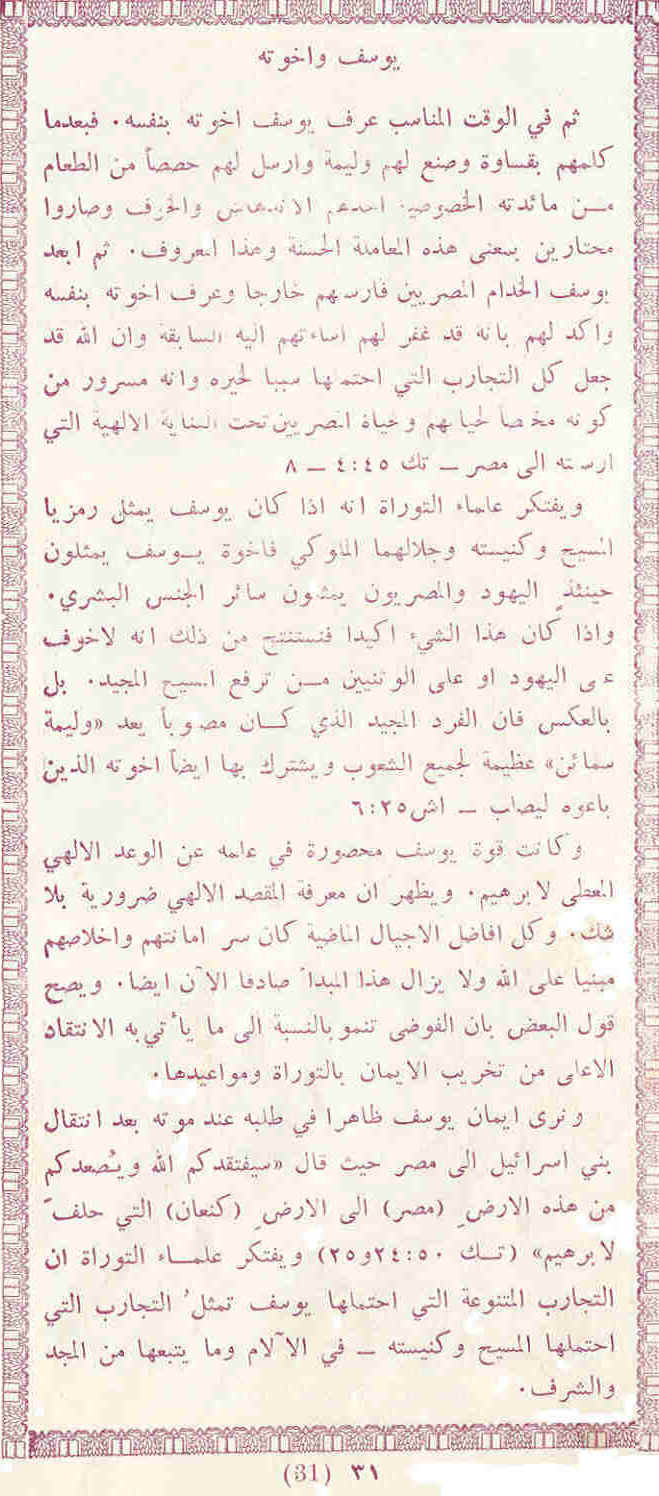 يوسف واخوته
ثم في الوقت المناسب عرف يوسف اخوته بنفسه. فبعدما
كلمهم بقساوة وصنع لهم وليمة وارسل لهم حصصاً من الطعام
من مائدته الخصوصية الاندهاش والخوف وصاروا
محتارين بمعنى هذه المعاملة الحسنة وهذا المعروف. ثم ابعد
يوسف الخدام المصريين فارسلهم خارجا وعرف اخوته بنفسه
واكد لهم بانه قد غفر لهم اساءتهم اليه السابقة وان الله قد
جعل كل التجارب التي احتملها سببا لخيره وانه مسرور من
كونه مخلصاً لحياتهم وحياة المصريين تحت العناية الالهية التي
ارسلته الى مصر – تك ٤٥:٤ – ٨
ويفتكر علماء التوراة انه اذا كان يوسف يمثل رمزيا
المسيح وكنيسته وجلالهما الملوكي فاخوة يوسف يمثلون
حينئذٍ اليهود والمصريون يمثلون سائر الجنس البشري.
واذا كان هذا الشيء اكيدا فنستنتج من ذلك انه لاخوف
على اليهود او على الوثنيين من ترفع المسيح المجيد. بل
بالعكس فان الفرد المجيد الذي كان مصلوباً يعد «وليمة
سمائن» عظيمة لجميع الشعوب ويشترك بها ايضاً اخوته الذين
باعوه ليصلب – اش٢٥:٦
وكانت قوة يوسف محصورة في علمه عن الوعد الالهي
المعطى لابرهيم. ويظهر ان معرفة المقصد الالهي ضرورية بلا
شك. وكل افاضل الاجيال الماضية كان سر امانتهم واخلاصهم
مبنيا على الله ولا يزال هذا المبدأ صادقا الآن ايضا. ويصح
قول البعض بان الفوضى تنمو بالنسبة الى ما يأتي به الانتقاد
الاعلى من تخريب الايمان بالتوراة ومواعيدها.
ونرى ايمان يوسف ظاهرا في طلبه عند موته بعد انتقال
بني اسرائيل الى مصر حيث قال «سيفتقدكم الله ويُصعدكم
من هذه الارضِ (مصر) الى الارضِ (كنعان) التي حلفَ
لابرهيم» (تك ٥٠:٢٤و٢٥) ويفتكر علماء التوراة ان
التجارب المتنوعة التي احتملها يوسف تمثلُ التجارب التي
احتملها المسيح وكنيسته – في الآلام وما يتبعها من المجد
والشرف.
٣١ (31)